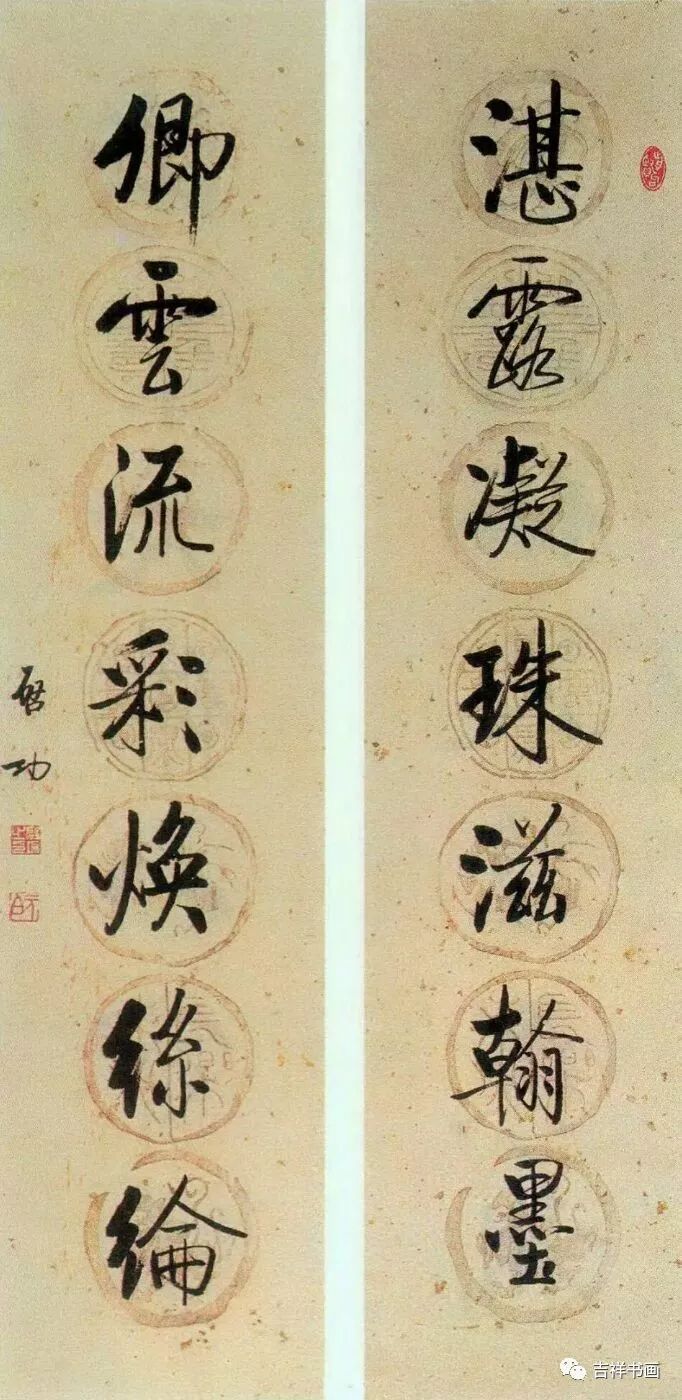 湛露凝珠滋翰墨
卿雲流彩煥絲綸
啓功
吉祥书画